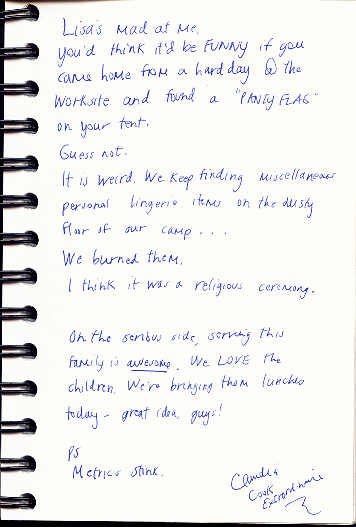 Lisa's mad at me.
You'd think it'd be FUNNY if you
came home from a hard day @ the
worksite and found a "PANTY FLAG"
on your tent.
Guess not.
It is weird. We keep finding miscellaneous
personal lingerie items on the dusty
floor of our camp...
We burned them.
I think it was a religious ceremony.
On the serious side, serving this
family is awesome. We LOVE the
children. We're bringing them lunches
today - great idea, guys!
PS
Metrics stink.
Cook
Extrordinaire